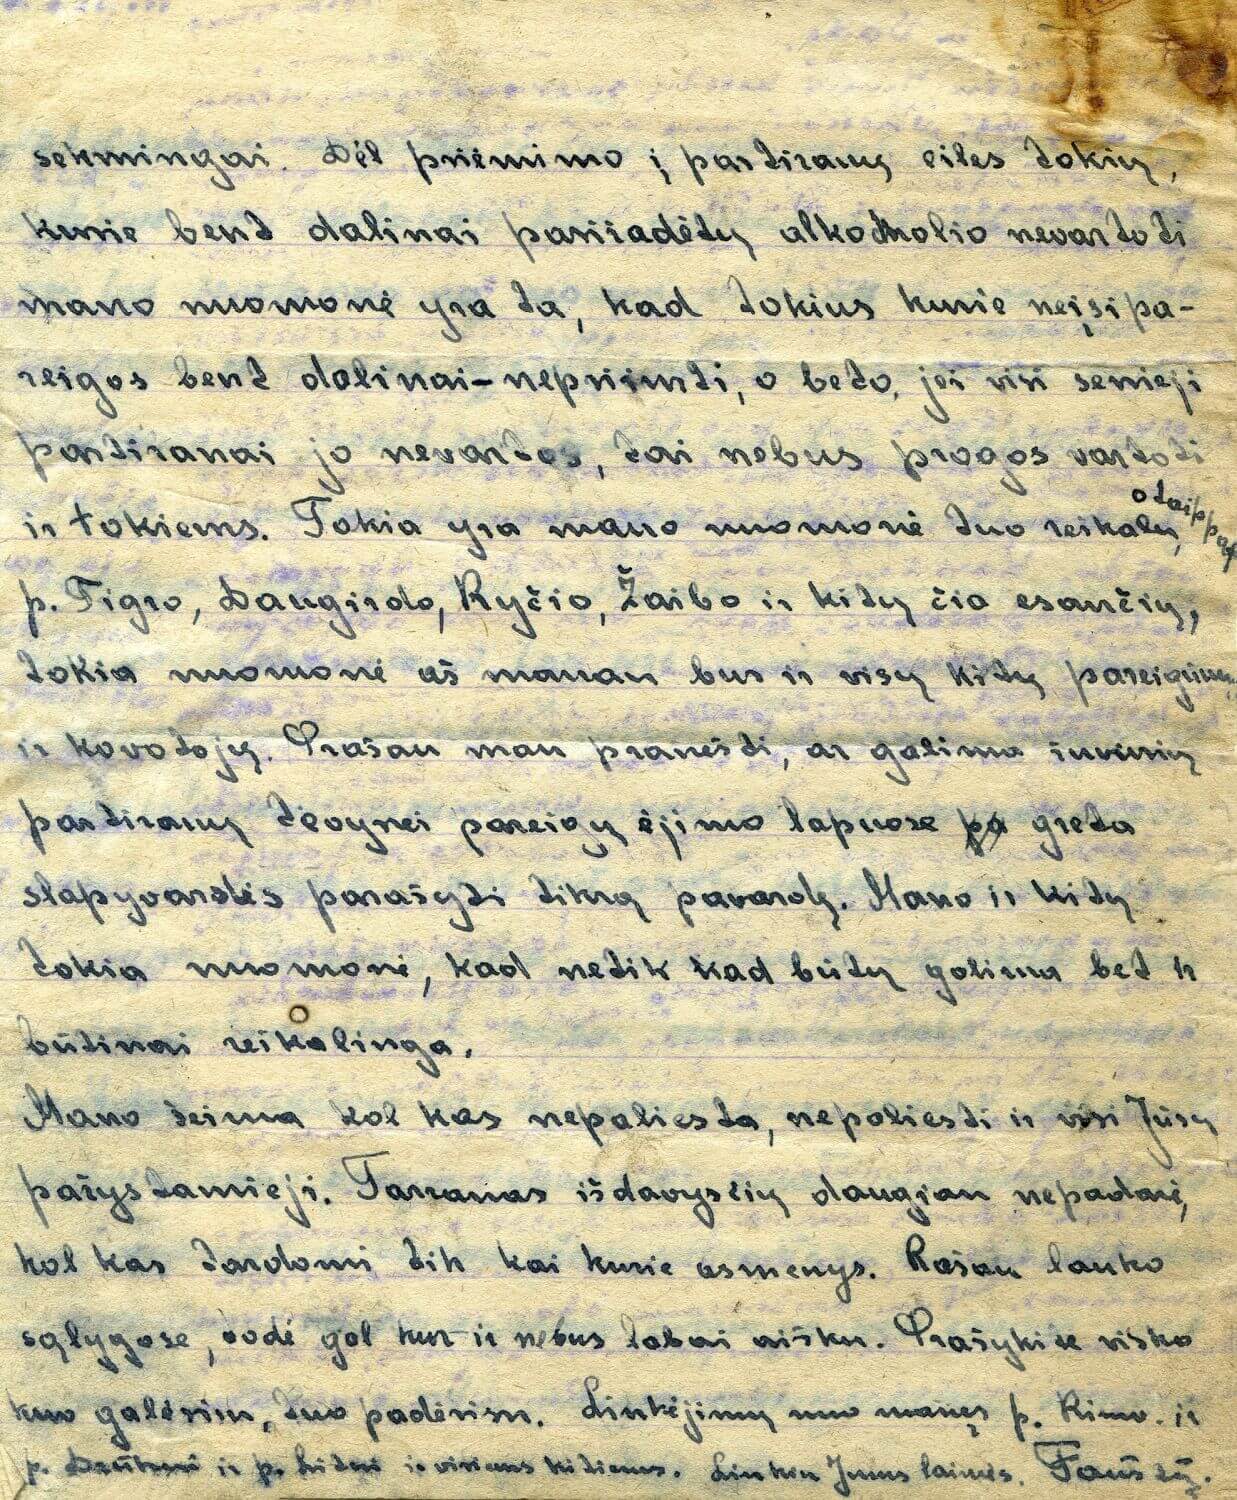 sekmingai. Dėl priėmimo į partizanų eiles tokių,
kurie bent dalinai pasižadėtų alkoholio nevartoti
mano nuomonė yra ta, kad tokius kurie neįsipa-
reigos bent dalinai-nepriimti, o beto, jei visi senieji
partizanai jo nevartos, tai nebus progos vartoti
ir tokiems. Tokia yra mano nuomonė tuo reikalu, o taippat
p. Tigro, Daugirdo, Ryčio, Žaibo ir kitų čia esančių,
tokia nuomonė aš manau bus ir visų kitų pareigūnų
ir kovotojų. Prašau man pranešti, ar galima žuvusių
partizanų tėvynei pareigų ėjimo lapuose greta
slapyvardės parašyti tikrą pavardę. Mano ir kitų
tokia nuomonė, kad netik kad būtų galima bet ir
būtinai reikalinga.
Mano šeima kol kas nepaliesta, nepaliesti ir visi Jūsų
pažystamieji. Tarzanas išdavysčių daugiau nepadarė,
kol kas tardomi tik kai kurie asmenys. Rašau lauko
sąlygose, todė gal kur ir nebus labai aišku. Prašykite visko
kuo galėsim, tuo padėsim. Linkėjimų nuo manęs p. Rimv. ir
p. ir p. ir visiems kitiems. Linkiu Jums laimės.